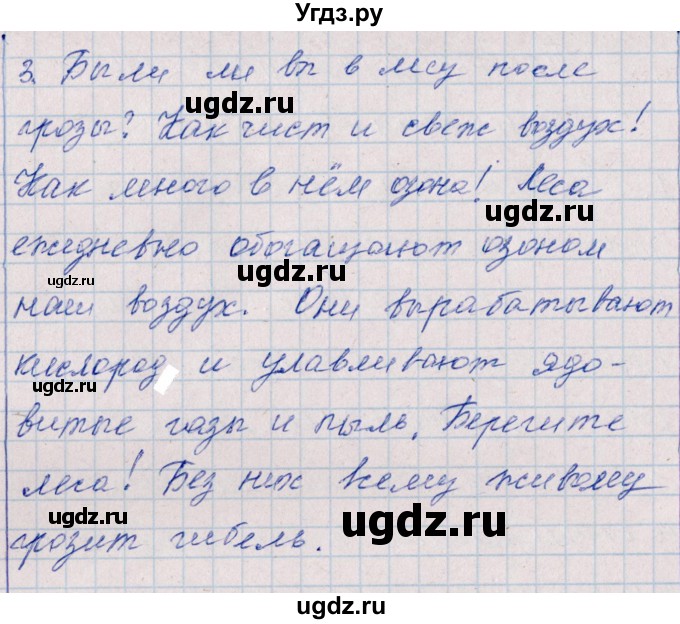 Угдз.ру
3. Были ли вы в лесу после
ugdz.ru
грозы? Как чист и свеж воздух!
Как много в нём озона! Леса
ugdz.ru
ежедневно обогащают озоном
ugdz.ru
наш воздух. Они вырабатывают
кислород и улавливают ядо-
ugdz.ru
витые газы и пыль. Берегите
леса! Без них всему живому
ugdz.ru
ugdz.ru
грозит гибель.
ugdz.ru